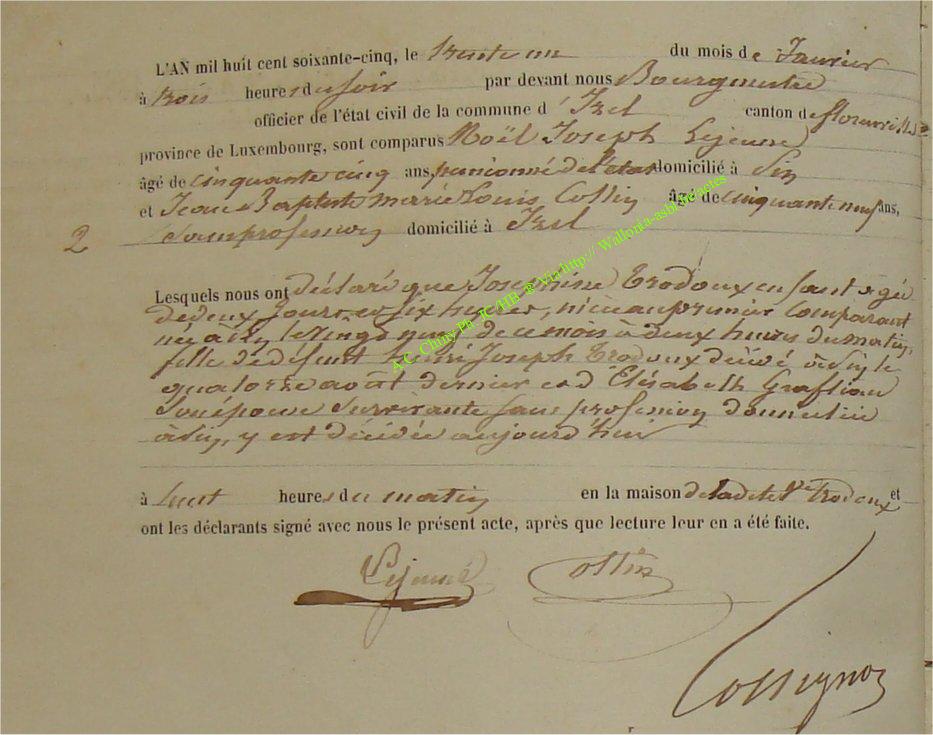 L'AN mil huit cent soixante-cinq, le trente un du mois de Janvier
à trois heures du soir par devant nous Bourgmestre
officier de l'état civil de la commune d' Izel canton de florenville
province de Luxembourg, sont comparus Noël Joseph Lejeune
âgé de cinquante cinq ans, pensionné de l'état domicilié à Pin
et Jean Baptiste marie Louis Collin âgé de cinquante neuf ans,
2 sans profession domicilié à Izel
Lesquels nous ont déclaré que Josephine Trodoux enfant agé
de deux jours et six heures, nièce au premier Comparant
née à Pin le vingt neuf de ce mois à deux heures du matin,
fille de défunt Henri Joseph Trodoux décédé à Pin le
quatorze août dernier et d' Elisabeth Graftiau
son épouse survivante sans profession domiciliée
à Pin, y est décédée aujourd'hui
à huit heures du matin en la maison de ladite Ve Trodoux et
ont les déclarants signé avec nous le présent acte, après que lecture leur en a été faite.
Lejeune Collin
Cossignon
A.C. Chiny Ph. JC/HB @ Via http:// Wallonia-asbl.be/actes